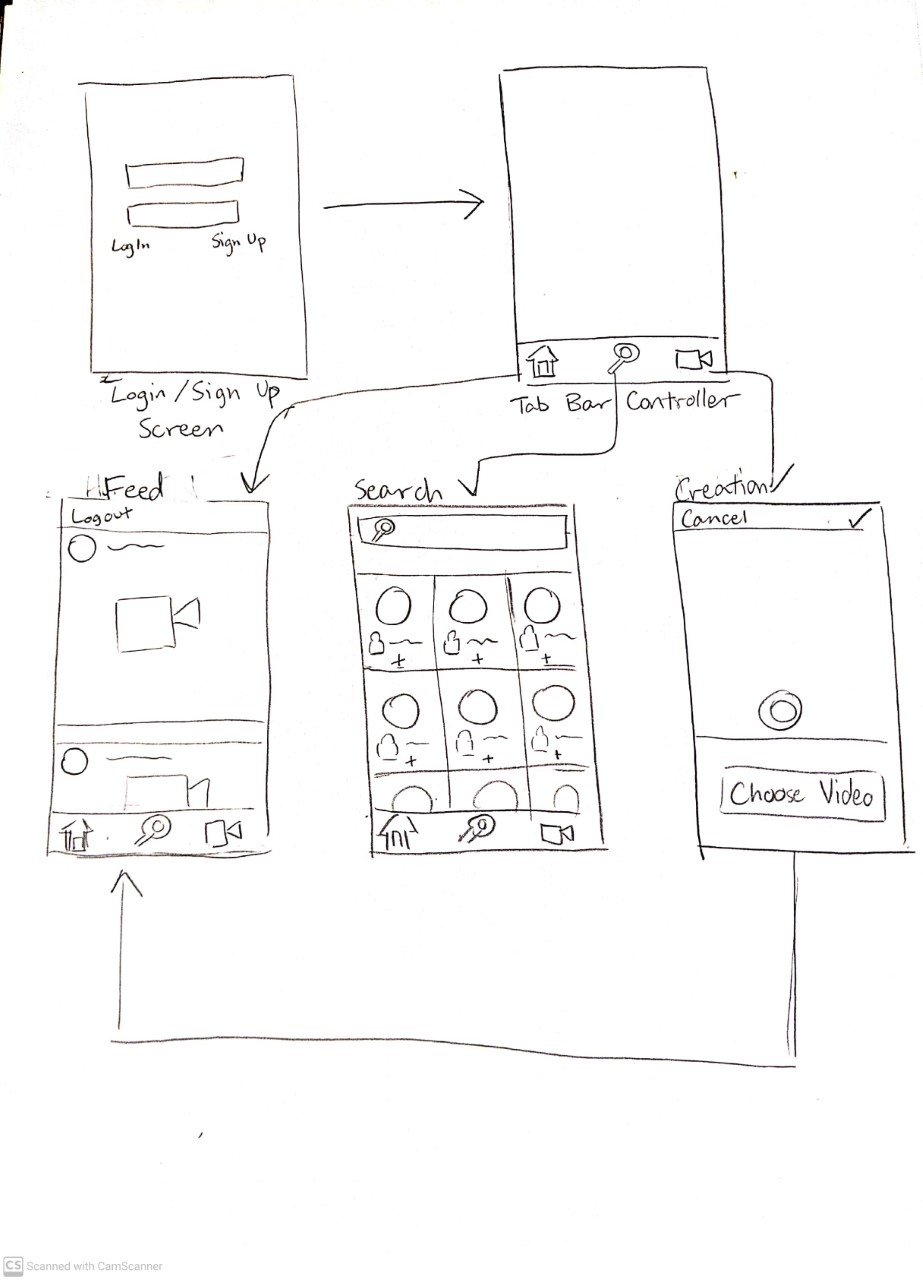 LogIn
Sign Up
Login / Sign Up
Screen
Tab Bar Controller
Feed
Logout
Search
Creation
Cancel
Choose Video
CS Scanned with CamScanner